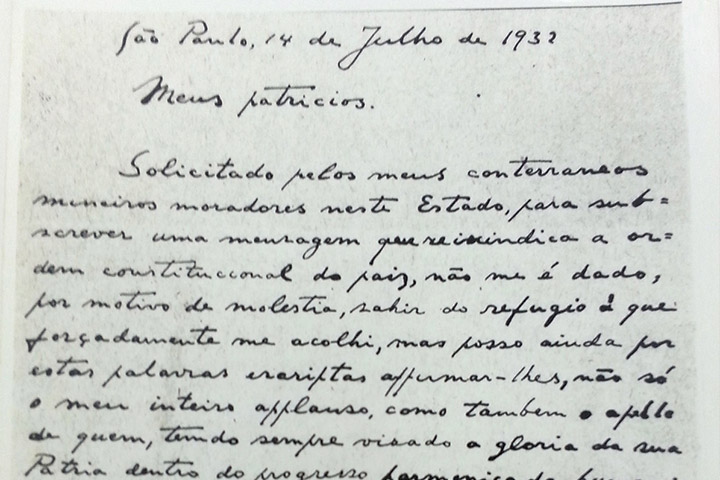 São Paulo, 14 de Julho de 1932
Meus patricios.
Solicitado pelos meus conterraneos
mineiros moradores neste Estado, para sub=
screver uma mensagem que reinvindica a or=
dem constitucional do paiz, não me é dado,
por motivo de molestia, sahir do refugio á que
forçadamente me acolhi, mas posso ainda por
estas palavras escriptas affirmar-lhes, não só
o meu inteiro applauso, como tambem o apello
de quem, tendo sempre visado a gloria da sua
Patria dentro do progresso harmonico da